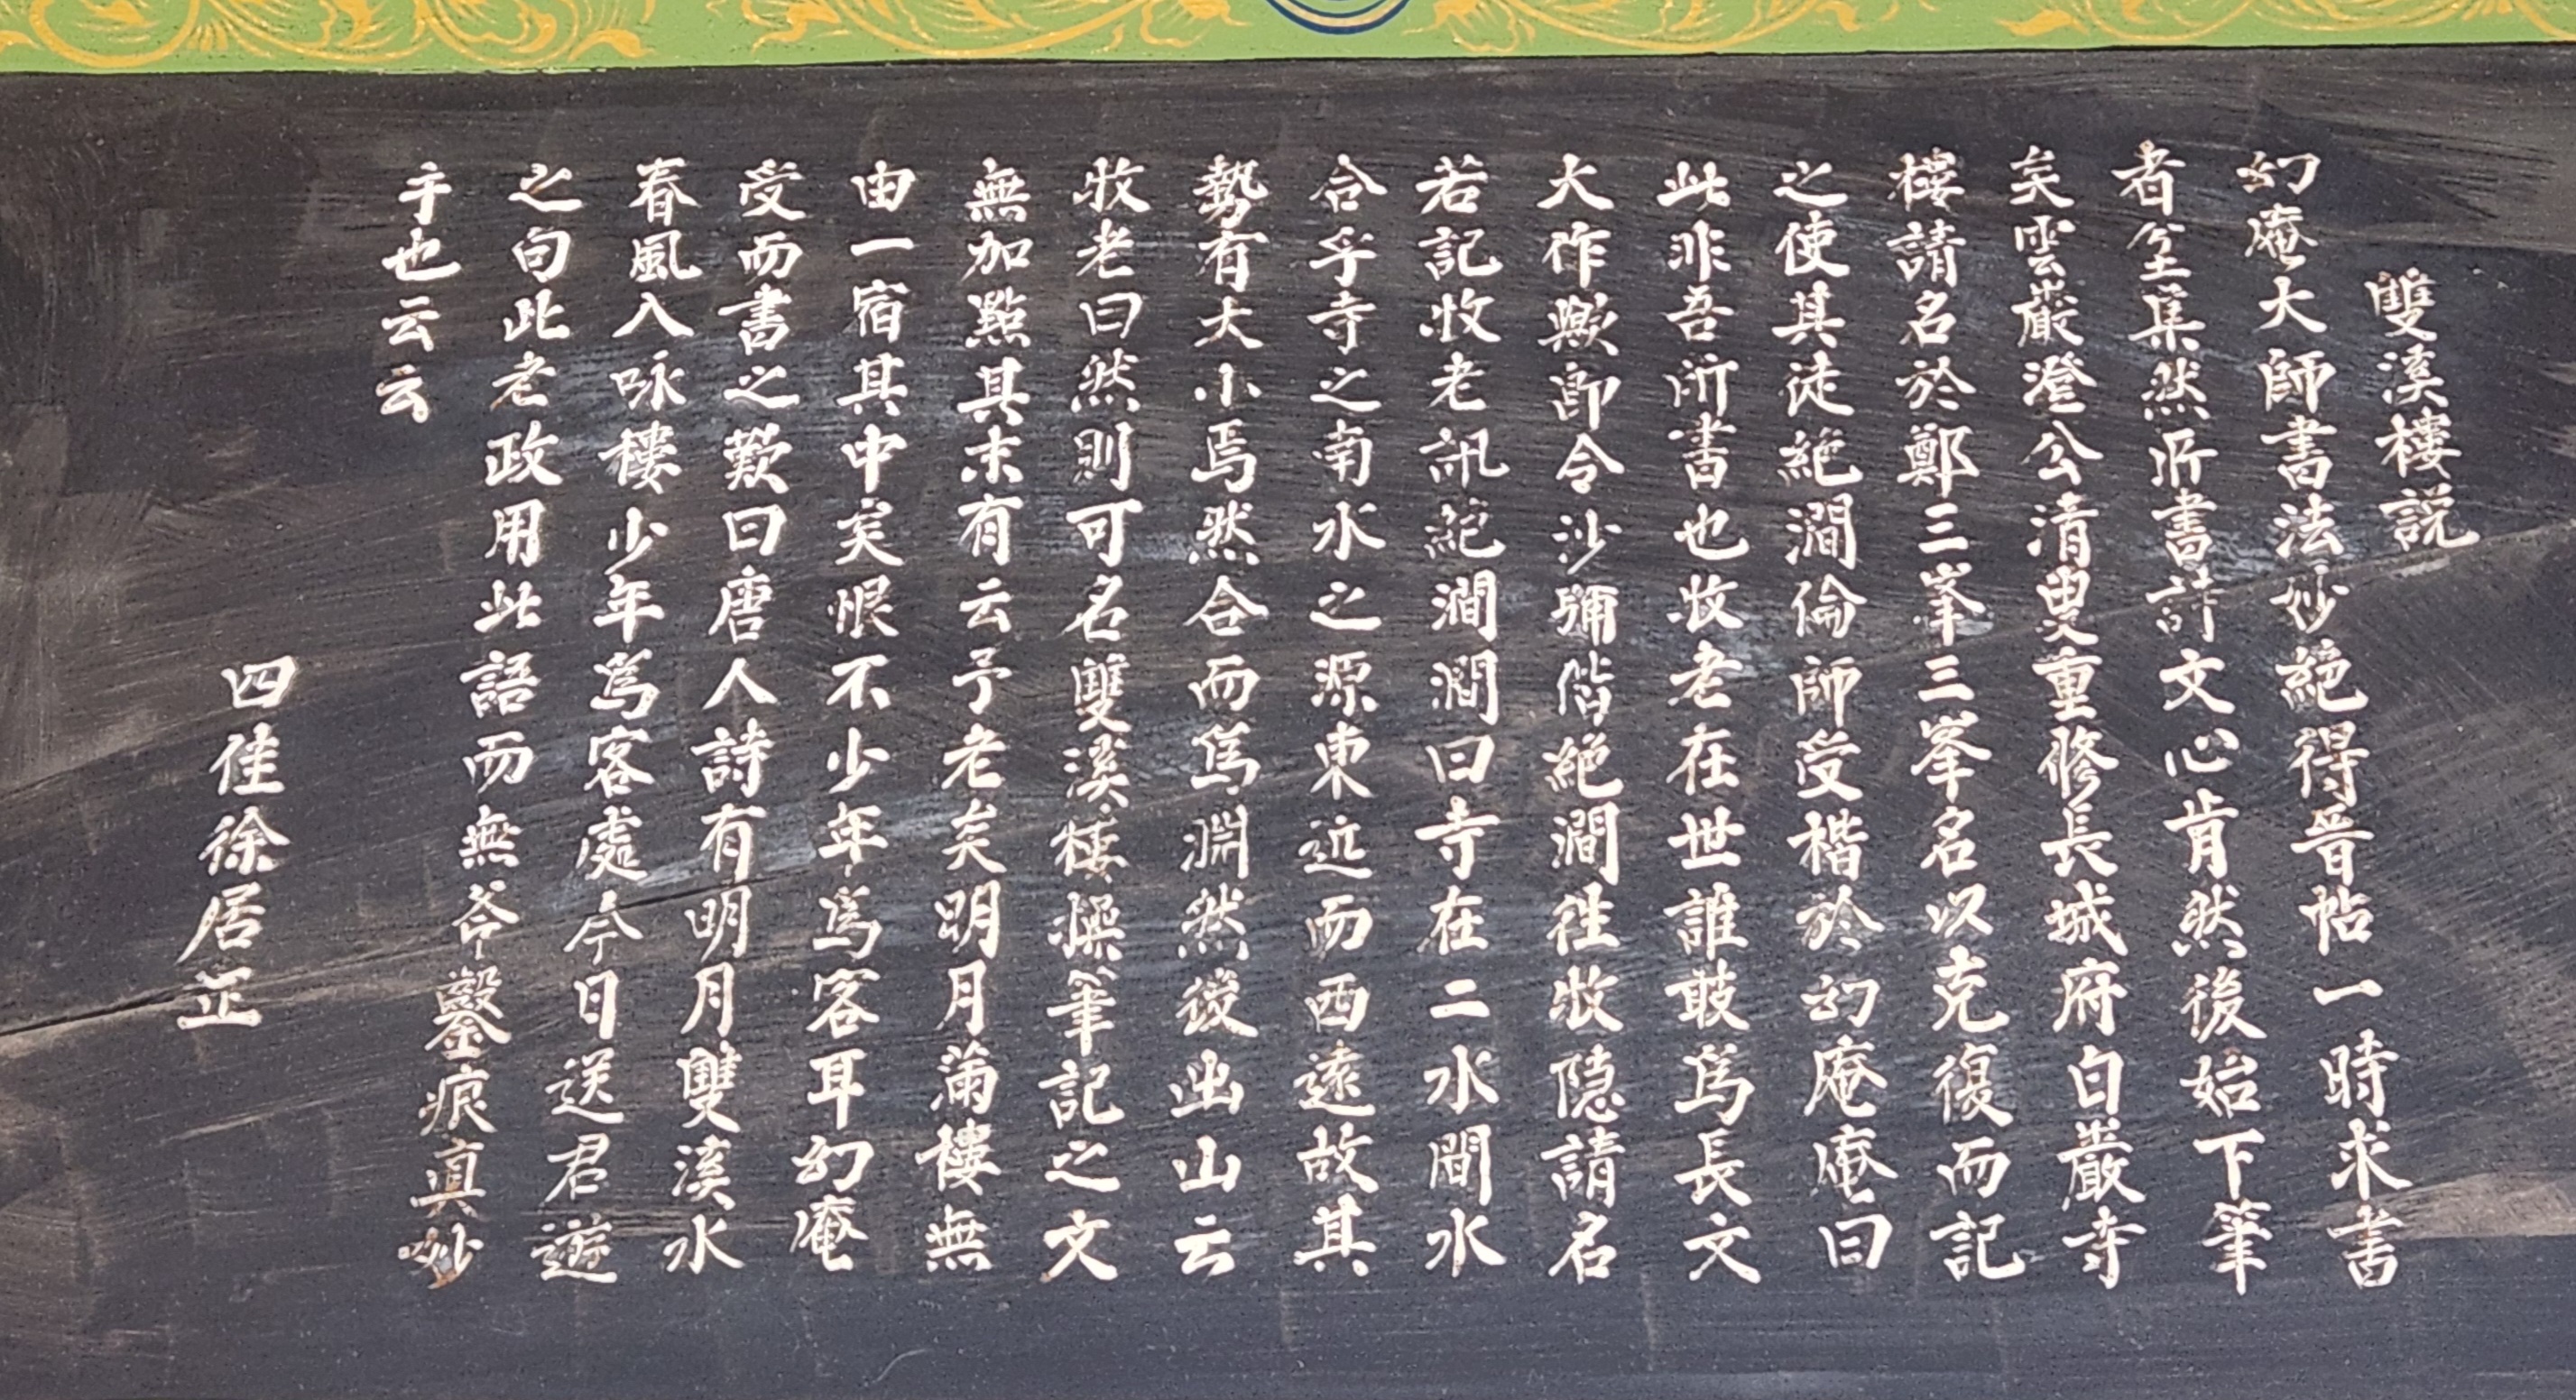 雙溪樓説
幻庵大師書法妙絕得晉帖一時求書
者坌集然所書詩文心肯然後始下筆
矣雲巖澄公清叟重修長城府白巖寺
樓請名於鄭三峯三峯名以克復而記
之使其徒絕澗倫師受楷於幻庵庵曰
此非吾所書也牧老在世誰敢爲長文
大作歟卽令沙彌偕絕澗徃牧隱請名
若記牧老訊絕澗澗曰寺在二水間水
合乎寺之南水之源東近而西遠故其
勢有大小焉然合而爲淵然後出山云
牧老曰然則可名雙溪樓操筆記之文
無加點其末有云予老矣明月滿樓無
由一宿其中矣恨不少年爲客耳幻庵
受而書之歎曰唐人詩有明月雙溪水
春風入咏樓少年爲客處今日送君遊
之句此老政用此語而無斧鑿痕眞妙
手也云云
四佳徐居正